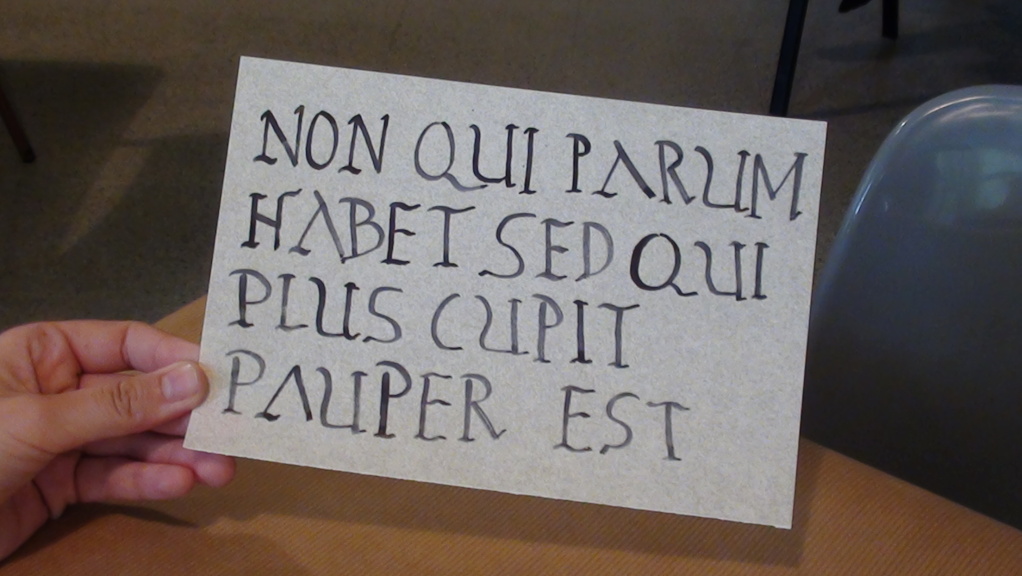 NON QUI PARUM
HABET SED QUI
PLUS CUPIT
PAUPER EST